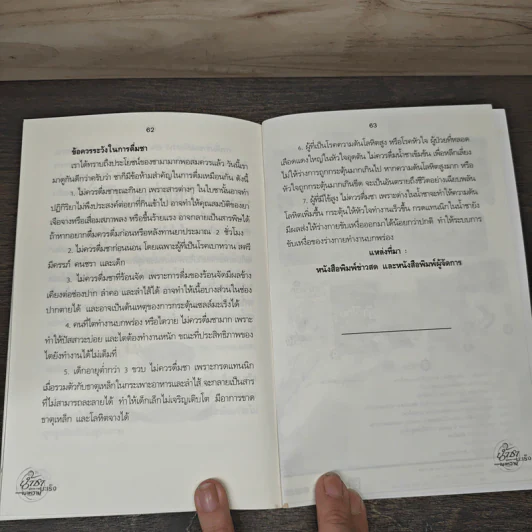 62
ข้อควรระวังในการดื่มชา
เราได้ทราบถึงประโยชน์ของชามามากพอสมควรแล้ว วันนี้เรา
มาดูกันดีกว่าครับว่า ชาก็มีข้อห้ามสำคัญในการดื่มเหมือนกัน ดังนี้
1. ไม่ควรดื่มชาขณะกินยา เพราะสารต่างๆ ในใบชานั้นอาจทำ
ปฏิกิริยาไม่พึงประสงค์ต่อยาที่กินเข้าไป อาจทำให้คุณสมบัติของยา
เจือจางหรือเสื่อมสภาพลง หรือขั้นร้ายแรง อาจกลายเป็นสารพิษได้
ถ้าหากอยากดื่มควรดื่มก่อนหรือหลังทานยาประมาณ 2 ชั่วโมง
2. ไม่ควรดื่มชาก่อนนอน โดยเฉพาะผู้ที่เป็นโรคเบาหวาน สตรี
มีครรภ์ คนชรา และเด็ก
3. ไม่ควรดื่มชาที่ร้อนจัด เพราะการดื่มของร้อนจัดมีผลข้าง
เคียงต่อช่องปาก ลำคอ และลำไส้ได้ อาจทำให้เนื้อบางส่วนในช่อง
ปากตายได้ และอาจเป็นต้นเหตุของการกระตุ้นเซลล์มะเร็งได้
4. คนที่ไตทำงานบกพร่อง หรือไตวาย ไม่ควรดื่มชามาก เพราะ
ทำให้ปัสสาวะบ่อย และไตต้องทำงานหนัก ขณะที่ประสิทธิภาพของ
ไตยังทำงานได้ไม่เต็มที่
5. เด็กอายุต่ำกว่า 3 ขวบ ไม่ควรดื่มชา เพราะกรดแทนนิก
เมื่อรวมตัวกับธาตุเหล็กในกระเพาะอาหารและลำไส้ จะกลายเป็นสาร
ที่ไม่สามารถละลายได้ ทำให้เด็กเล็กไม่เจริญเติบโต มีอาการขาด
ธาตุเหล็ก และโลหิตจางได้
63
6. ผู้ที่เป็นโรคความดันโลหิตสูง หรือโรคหัวใจ ผู้ป่วยที่หลอด
เลือดแดงใหญ่ในหัวใจอุดตัน ไม่ควรดื่มน้ำชาเข้มข้น เพื่อหลีกเลี่ยง
ไม่ให้ร่างกายถูกกระตุ้นมากเกินไป หากความดันโลหิตสูงมาก หรือ
หัวใจถูกกระตุ้นมากเกินขีด จะเป็นอันตรายถึงชีวิตอย่างเฉียบพลัน
7. ผู้มีไข้สูง ไม่ควรดื่มชา เพราะด่างในน้ำชาจะทำให้ความดัน
โลหิตเพิ่มขึ้น กระตุ้นให้หัวใจทำงานเร็วขึ้น กรดแทนนิกในน้ำชายัง
มีผลส่งให้ร่างกายขับเหงื่อออกมาได้น้อยกว่าปกติ ทำให้ระบบการ
ขับเหงื่อของร่างกายทำงานบกพร่อง
แหล่งที่มา :
หนังสือพิมพ์ข่าวสด และหนังสือพิมพ์ผู้จัดการ